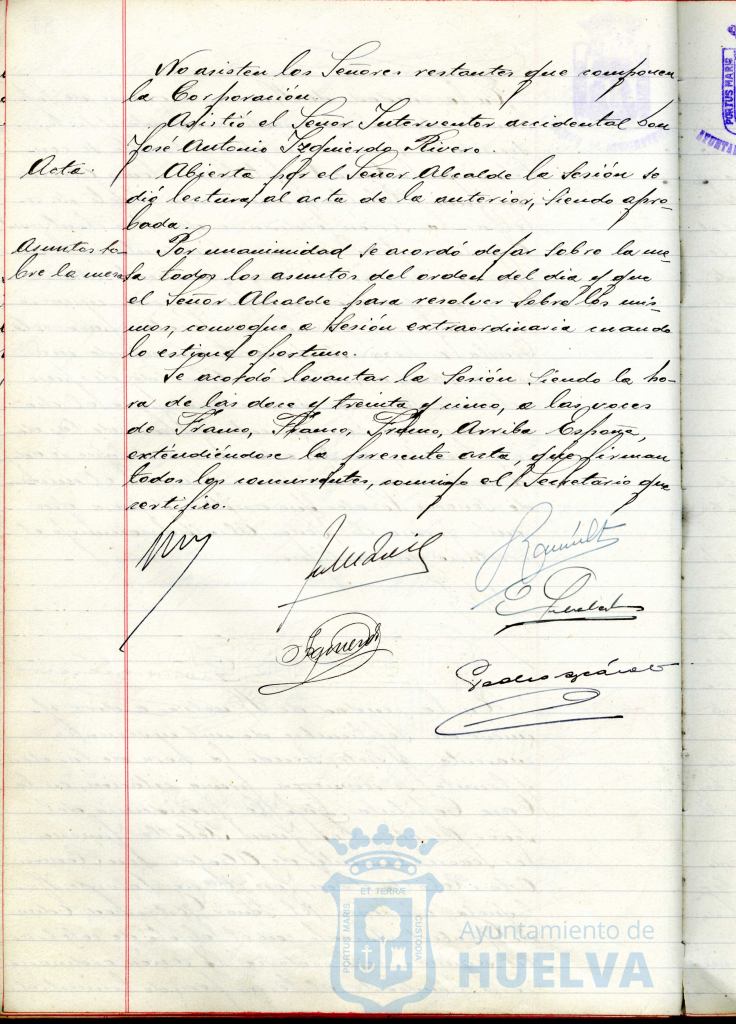 No asisten los Señores restantes que componen
la Corporación.
Asistió el Señor Interventor accidental Don
José Antonio Izquierdo Rivero.
Acta.
Abierta por el Señor Alcalde la Sesión se
dió lectura al acta de la anterior, siendo apro-
bada.
Asuntos so-
bre la mesa
Por unanimidad se acordó dejar sobre la me-
sa todos los asuntos del orden del dia y que
el Señor Alcalde para resolver sobre los mis-
mos, convoque a Sesión extraordinaria cuando
lo estime oportuno.
Se acordó levantar la Sesión siendo la ho-
ra de las doce y treinta y cinco, a las voces
de Franco, Franco, Franco, Arriba España,
extendiéndose la presente acta, que firman
todos los concurrentes, conmigo el Secretario que
certifico.
ET TERRÆ
PORTUS MARIS
CUSTODIA
Ayuntamiento de
HUELVA
PORTUS MARIS